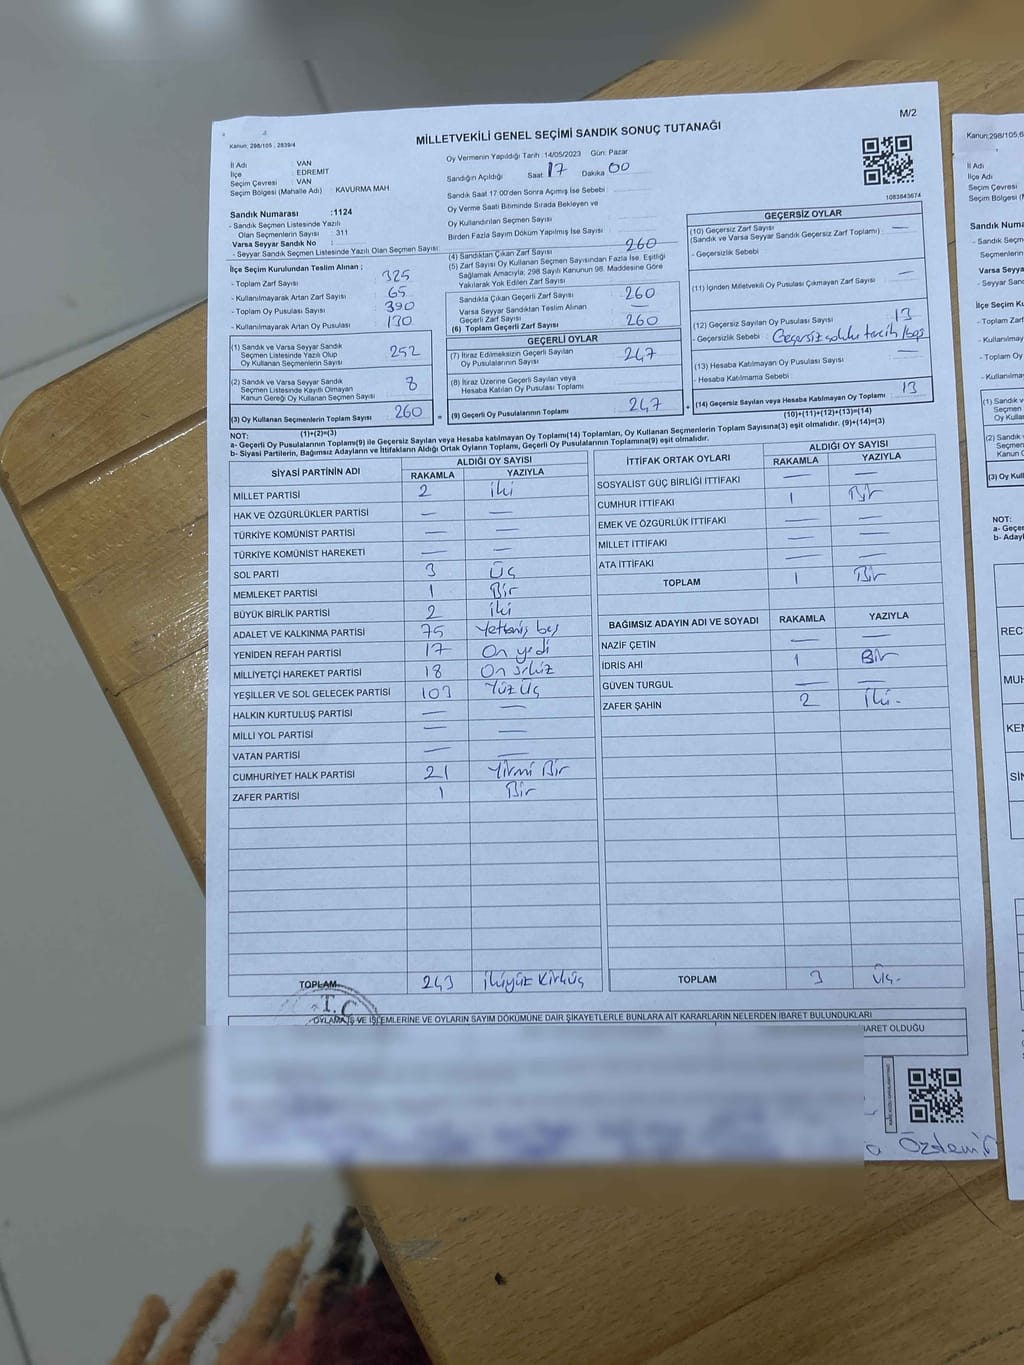 M/2
Kanun; 298/105 , 2839/4
MİLLETVEKİLİ GENEL SEÇİMİ SANDIK SONUÇ TUTANAĞI
İl Adı : VAN
İlçe : EDREMIT
Seçim Çevresi : VAN
Seçim Bölgesi (Mahalle Adı) : KAVURMA MAH
Sandık Numarası :1124
- Sandık Seçmen Listesinde Yazılı
Olan Seçmenlerin Sayısı : 311
Varsa Seyyar Sandık No :
- Seyyar Sandık Seçmen Listesinde Yazılı Olan Seçmen Sayısı:
Oy Vermenin Yapıldığı Tarih :14/05/2023 Gün: Pazar
Sandığın Açıldığı Saat 17 Dakika 00
Sandık Saat 17:00'den Sonra Açılmış İse Sebebi :
Oy Verme Saati Bitiminde Sırada Bekleyen ve
Oy Kullandırılan Seçmen Sayısı
Birden Fazla Sayım Döküm Yapılmış İse Sayısı :
1083843674
İlçe Seçim Kurulundan Teslim Alınan ;
- Toplam Zarf Sayısı : 325
- Kullanılmayarak Artan Zarf Sayısı : 65
- Toplam Oy Pusulası Sayısı : 390
- Kullanılmayarak Artan Oy Pusulası : 130
(1) Sandık ve Varsa Seyyar Sandık
Seçmen Listesinde Yazılı Olup
Oy Kullanan Seçmenlerin Sayısı : 252
(2) Sandık ve Varsa Seyyar Sandık
Seçmen Listesinde Kayıtlı Olmayan
Kanun Gereği Oy Kullanan Seçmen Sayısı : 8
(3) Oy Kullanan Seçmenlerin Toplam Sayısı : 260
(4) Sandıktan Çıkan Zarf Sayısı : 260
(5) Zarf Sayısı Oy Kullanan Seçmen Sayısından Fazla İse, Eşitliği
Sağlamak Amacıyla, 298 Sayılı Kanunun 98. Maddesine Göre
Yakılarak Yok Edilen Zarf Sayısı :
Sandıkta Çıkan Geçerli Zarf Sayısı : 260
Varsa Seyyar Sandıktan Teslim Alınan
Geçerli Zarf Sayısı : —
(6) Toplam Geçerli Zarf Sayısı : 260
GEÇERLİ OYLAR
(7) İtiraz Edilmeksizin Geçerli Sayılan
Oy Pusulalarının Sayısı : 247
(8) İtiraz Üzerine Geçerli Sayılan veya
Hesaba Katılan Oy Pusulası Toplamı :
= (9) Geçerli Oy Pusulalarının Toplamı : 247
GEÇERSİZ OYLAR
(10) Geçersiz Zarf Sayısı : —
(Sandık ve Varsa Seyyar Sandık Geçersiz Zarf Toplamı)
- Geçersizlik Sebebi :
(11) İçinden Milletvekili Oy Pusulası Çıkmayan Zarf Sayısı : —
(12) Geçersiz Sayılan Oy Pusulası Sayısı : 13
- Geçersizlik Sebebi : Geçersiz
(13) Hesaba Katılmayan Oy Pusulası Sayısı : —
- Hesaba Katılmama Sebebi :
+ (14) Geçersiz Sayılan veya Hesaba Katılmayan Oy Toplamı : 13
NOT: (1)+(2)=(3) (10)+(11)+(12)+(13)=(14)
a- Geçerli Oy Pusulalarının Toplamı(9) ile Geçersiz Sayılan veya Hesaba katılmayan Oy Toplamı(14) Toplamları, Oy Kullanan Seçmenlerin Toplam Sayısına(3) eşit olmalıdır. (9)+(14)=(3)
b- Siyasi Partilerin, Bağımsız Adayların ve İttifakların Aldığı Ortak Oyların Toplamı, Geçerli Oy Pusulalarının Toplamına(9) eşit olmalıdır.
SİYASİ PARTİNİN ADI ALDIĞI OY SAYISI
RAKAMLA YAZIYLA
MİLLET PARTİSİ 2 iki
HAK VE ÖZGÜRLÜKLER PARTİSİ — —
TÜRKİYE KOMÜNİST PARTİSİ — —
TÜRKİYE KOMÜNİST HAREKETİ — —
SOL PARTİ 3 Üç
MEMLEKET PARTİSİ 1 Bir
BÜYÜK BİRLİK PARTİSİ 2 iki
ADALET VE KALKINMA PARTİSİ 75 Yetmiş beş
YENİDEN REFAH PARTİSİ 17 On yedi
MİLLİYETÇİ HAREKET PARTİSİ 18 On sekiz
YEŞİLLER VE SOL GELECEK PARTİSİ 103 Yüz Üç
HALKIN KURTULUŞ PARTİSİ — —
MİLLİ YOL PARTİSİ — —
VATAN PARTİSİ — —
CUMHURİYET HALK PARTİSİ 21 Yirmi Bir
ZAFER PARTİSİ 1 Bir
TOPLAM 243 ikiyüz kırküç
İTTİFAK ORTAK OYLARI ALDIĞI OY SAYISI
RAKAMLA YAZIYLA
SOSYALİST GÜÇ BİRLİĞİ İTTİFAKI — —
CUMHUR İTTİFAKI 1 Bir
EMEK VE ÖZGÜRLÜK İTTİFAKI — —
MİLLET İTTİFAKI — —
ATA İTTİFAKI — —
TOPLAM 1 Bir
BAĞIMSIZ ADAYIN ADI VE SOYADI RAKAMLA YAZIYLA
NAZİF ÇETİN — —
İDRİS AHİ 1 Bir
GÜVEN TURGUL — —
ZAFER ŞAHİN 2 İki-
TOPLAM 3 Üç-
T.C
OYLAMA İŞ VE İŞLEMLERİNE VE OYLARIN SAYIM DÖKÜMÜNE DAİR ŞİKAYETLERLE BUNLARA AİT KARARLARIN NELERDEN İBARET BULUNDUKLARI
İBARET OLDUĞU
Özdemir
Kanun;298/105,6
İl Adı
İlçe Adı
Seçim Çevresi
Seçim Bölgesi (M
Sandık Numa
- Sandık Seçm
Seçmenlerin
Varsa Seyya
- Seyyar Sandı
İlçe Seçim Ku
- Toplam Zarf
- Kullanılmay
- Toplam Oy
- Kullanılmaya
(1) Sandık v
Seçmen
Oy Kulla
(2) Sandık v
Seçmen
Kanun G
(3) Oy Kull
NOT:
a- Geçer
b- Adayl
REC
MUH
KEN
SİN